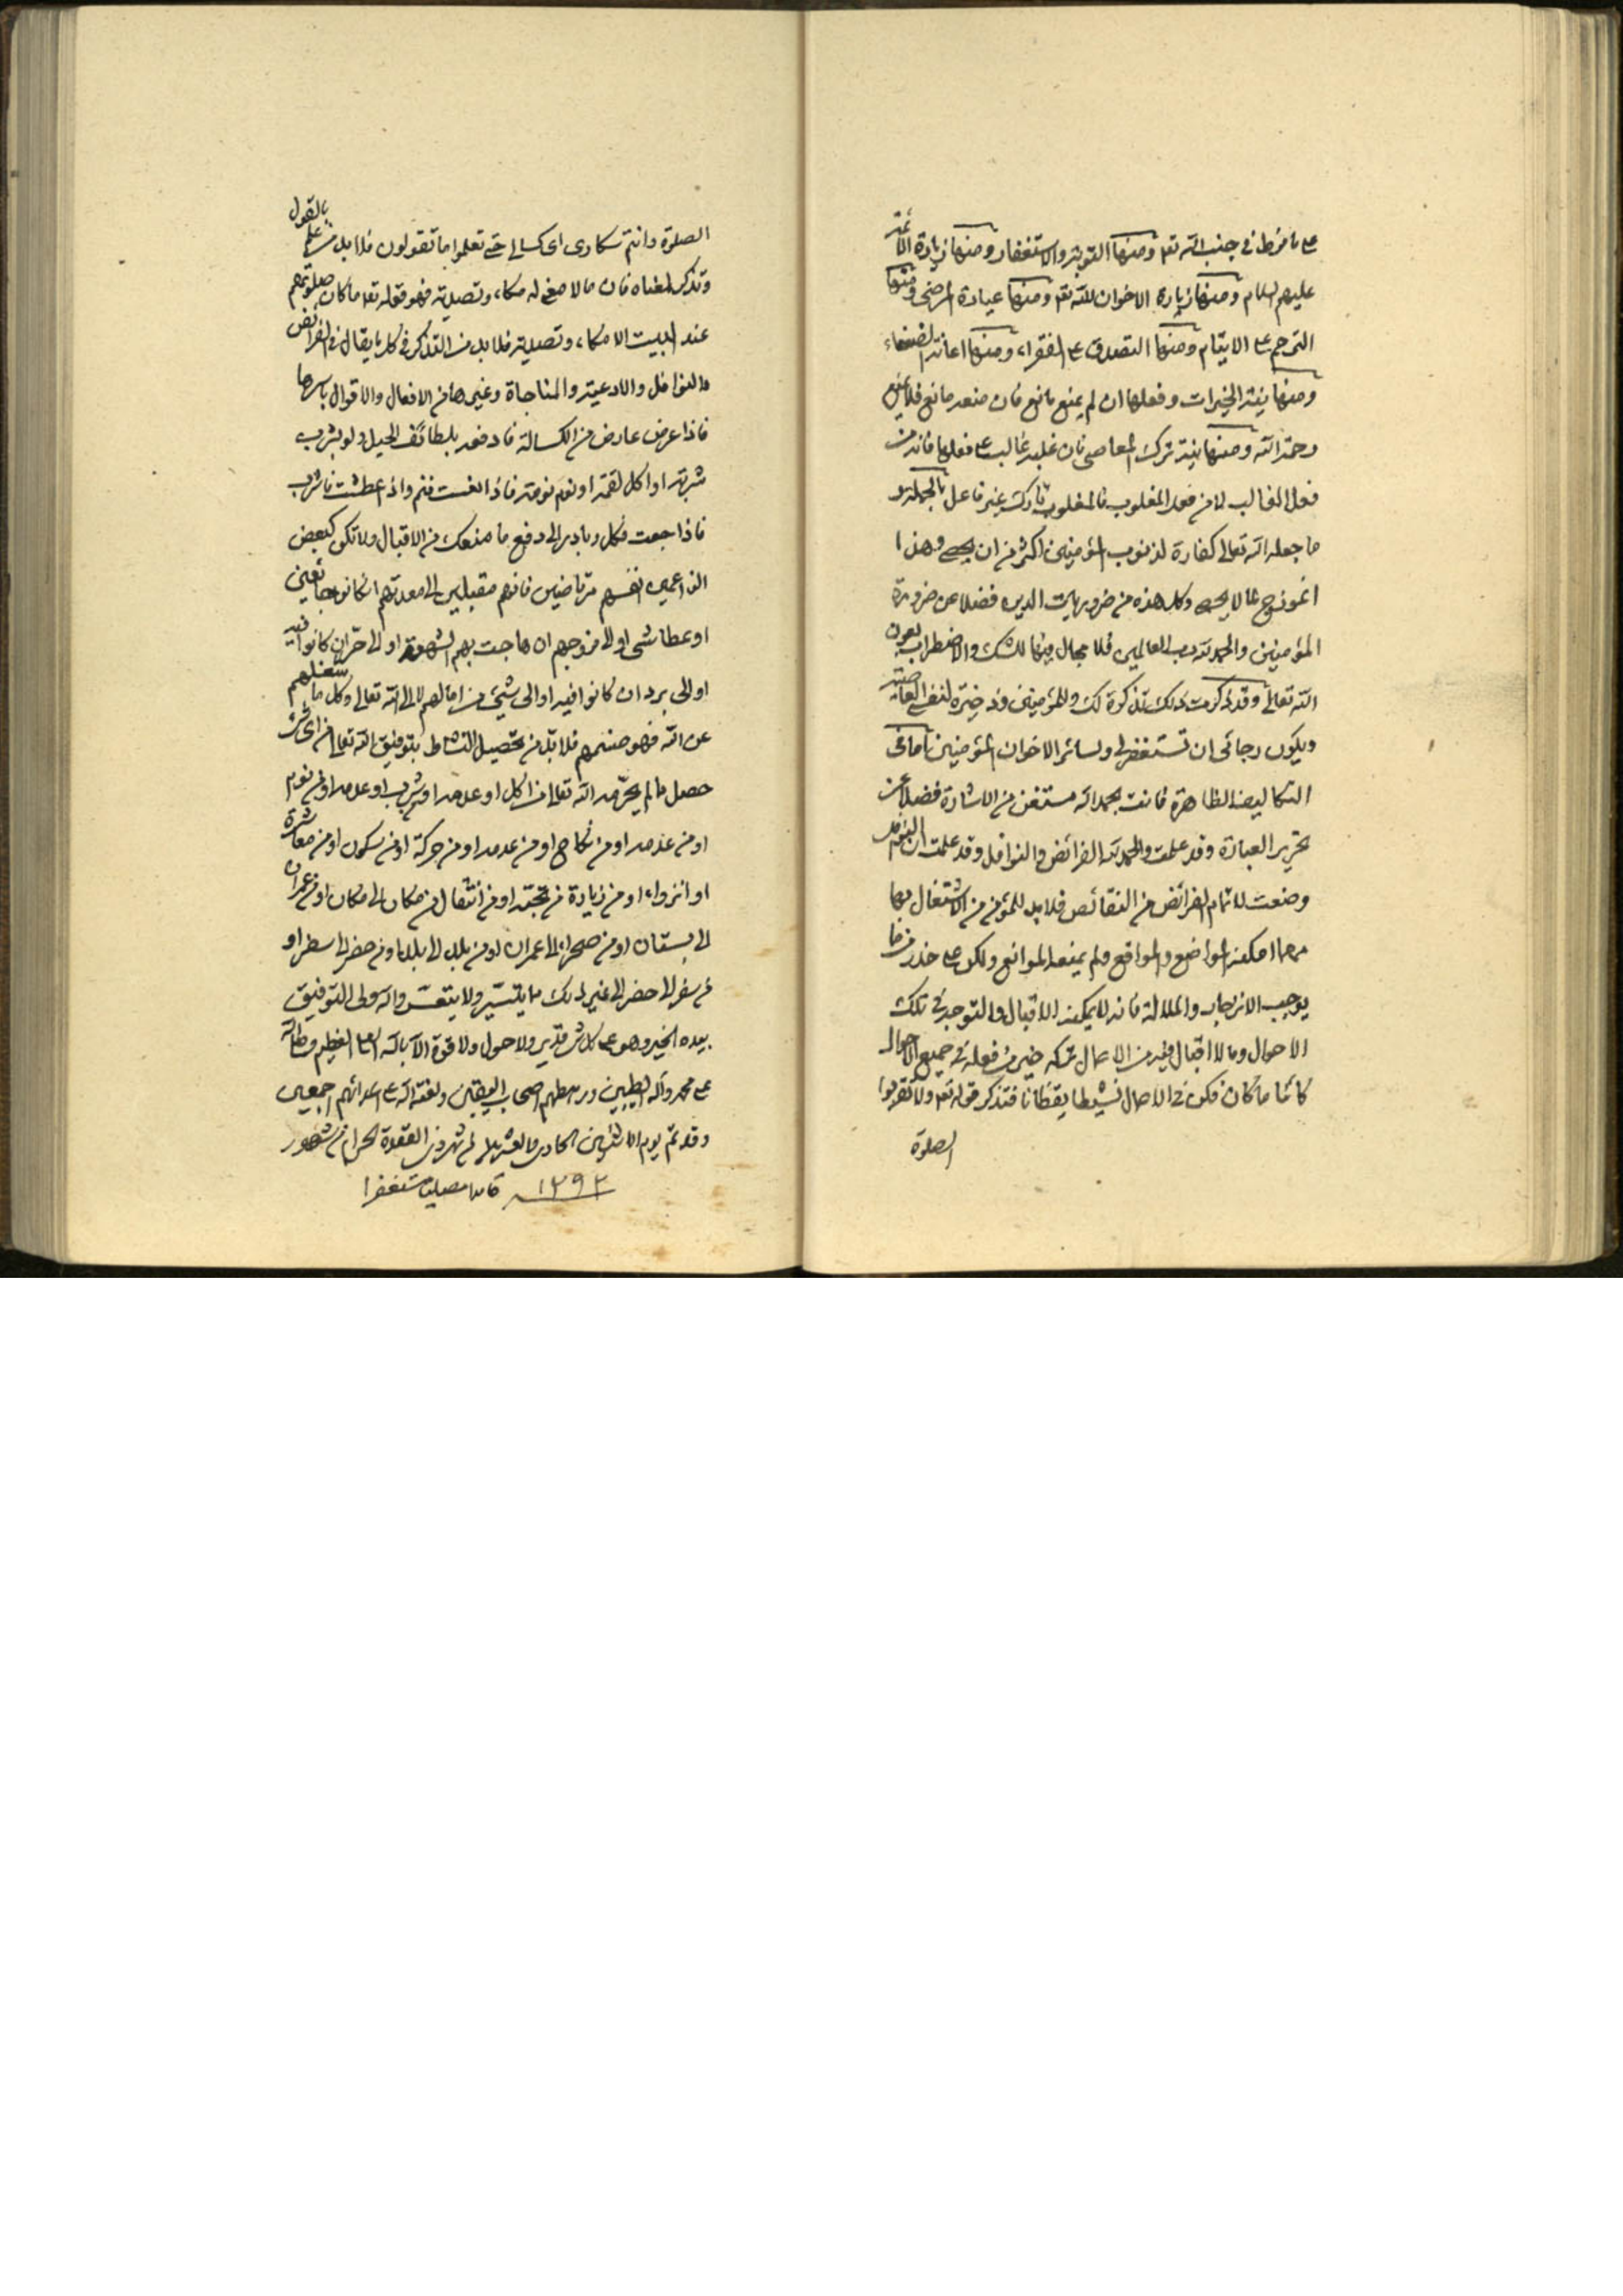 على ما فرط في جنب الله تعه ومنها التوبة والاستغفار ومنها زيارة الائمة
عليهم السلام ومنها زيارة الاخوان لله تعه ومنها عيادة المرضى ومنها
الترحم على الايتام ومنها التصدق على الفقراء ومنها اعانة الضعفاء
ومنها نية الخيرات وفعلها ان لم يمنع مانع فان منعه مانع فلا يمنع
رحمة الله ومنها نية ترك المعاصي فان غلبه غالب على فعلها فانه من
فعل الغالب لا من فعل المغلوب فالمغلوب تارك غير فاعل بالجملة و
ما جعله الله تعالى كفارة لذنوب المؤمنين اكثر من ان يحصى وهذا
انموذج مما لا يحصى وكل هذه من ضروريات الدين فضلا عن ضرورة
المؤمنين والحمد لله رب العالمين فلا مجال فيها للشك والاضطراب بعون
الله تعالى وقد ذكرت ذلك تذكرة لك وللمؤمنين وذخيرة لنفسي العاصية
ويكون رجائي ان تستغفر لي ولسائر الاخوان المؤمنين فاما في
التكاليف الظاهرة فانت بحمد الله مستغن من الاشارة فضلا عن
تحرير العبارة وقد علمت والحمد لله الفرائض والنوافل وقد علمت ان النوافل
وضعت لاتمام الفرائض من النقائص فلابد للمؤمن من الاشتغال بها
مهما امكنه المواضع والمواقع ولم يمنعه الموانع ولكن على حذر مما
يوجب الانزجار والملالة فانه لا يمكنه الاقبال والتوجه في تلك
الاحوال وما لا اقبال فيه من الاعمال تركه خير من فعله في جميع الاحوال
كائنا ما كان فكن في الاعمال نشيطا يقظانا فتذكر قوله تعه ولا تقربوا
الصلوة
الصلوة وانتم سكارى اي كسالى حتى تعلموا ما تقولون فلابد من علم بالقول
وتذكر لمعناه فان ما لا معنى له مكاء وتصدية فهو قوله تعه ما كان صلوتهم
عند البيت الا مكاء وتصدية فلابد من التذكر في كل ما يقال في الفرائض
والنوافل والادعية والمناجاة وغيرها من الافعال والاقوال باسرها
فاذا عرض عارض من الكسالة فادفعه بلطائف الحيل ولو بشرب
شربة او اكل لقمة او نوم نومة فاذا نعست فنم واذا عطشت فاشرب
فاذا جعت فكل وبادر الى دفع ما منعك من الاقبال ولا تكن كبعض
الزاعمين انفسهم مرتاضين فانهم مقبلين الى معدتهم ان كانوا جائعين
او عطاشى او الى فروجهم ان هاجت بهم الشهوة او الى حر ان كانوا فيه
او الى برد ان كانوا فيه او الى شيء من امالهم لا الى الله تعالى وكل ما شغلهم
عن الله فهو صنمهم فلابد من تحصيل النشاط بتوفيق الله تعالى من اي شيء
حصل ما لم يحرمه الله تعالى من اكل او عدمه او شرب او عدمه او من نوم
او من عدمه او من نكاح او من عدمه او من حركة او من سكون او من معاشرة
او انزواء او من زيادة من محبته او من انتقال من مكان الى مكان او من عمران
الى بستان او من صحراء الى عمران او من بلد الى بلد او من حضر الى سفر او
من سفر الى حضر الى غير ذلك مما يتيسر ولا يتعسر والله ولي التوفيق
بيده الخير وهو على كل شيء قدير ولا حول ولا قوة الا بالله العلي العظيم وصلى الله
على محمد وآله الطيبين ورهطهم اصحاب اليقين ولعنة الله على اعدائهم اجمعين
وقد تم يوم الاثنين الحادي والعشرين من شهر ذي القعدة الحرام من شهور
١٢٩٣ حامدا مصليا مستغفرا